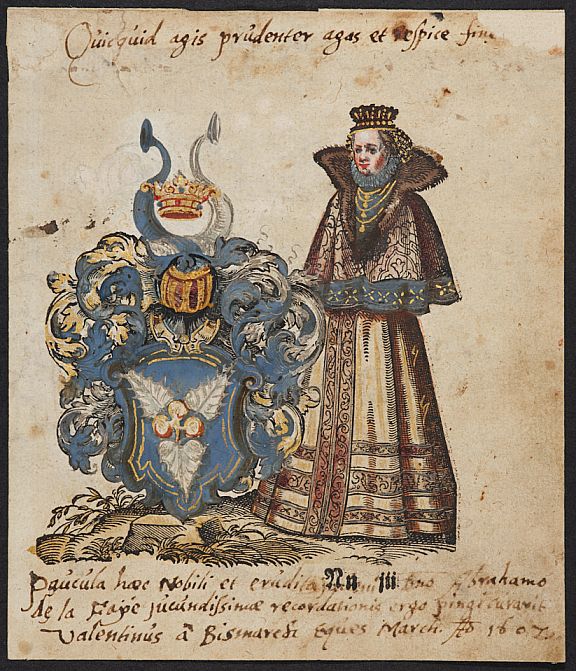 Quicquid agis prudenter agas et respice fin
Paucula hæc Nobili et erudita Dno Abrahamo
Nn iij
de la Faye jucundissimæ recordationis ergo pingi curavit
Valentinus â Bismarch Eques March. Aō 1602